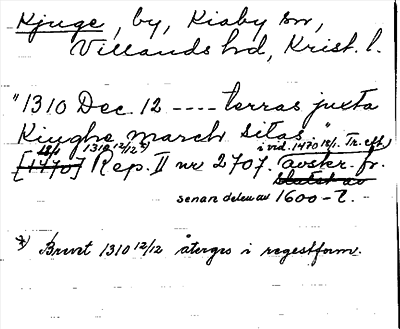 Kjuge, by, Kiaby sn,
Villands hd, Krist. l.
"1310 Dec. 12 ---- terras juxta
Kiughe march sitas"
18/1 1310 12/12 *) i vid. 1470 18/1. Tr. eft.
[1470] Rep. II nr 2707. avskr. fr.
slutet av
senare delen av 1600-t.
*) Brevet 1310 12/12 återges i regestform.